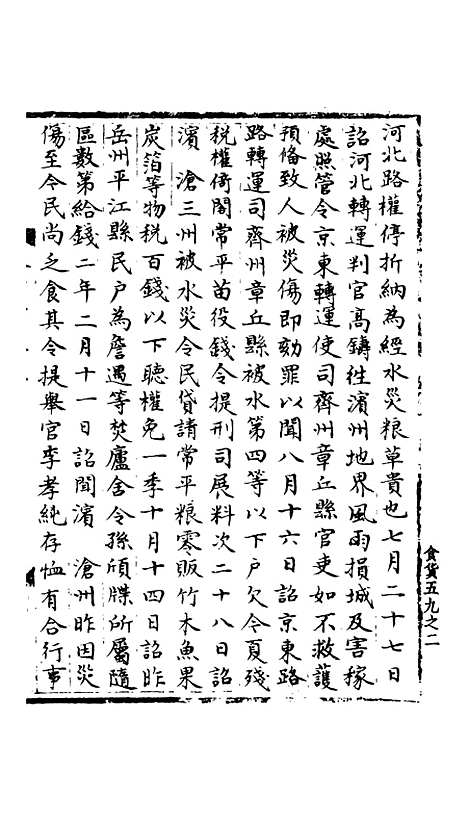 河北路權停折納為經水災粮草貴也七月二十七日
詔河北轉運判官高鑄往濱州地界風雨損城及害稼
處照管令京東轉運使司齊州章丘縣官吏如不救護
預俻致人被災傷即劾罪以聞八月十六日詔京東路
路轉運司齊州章丘縣被水第四等以下戶欠今夏殘
稅權倚閣常平苗役錢令提刑司展料次二十八日詔
濱 滄三州被水災令民貸請常平粮零販竹木魚果
炭箔等物稅百錢以下聽權免一季十月十四日詔昨
岳州平江縣民戶為詹遇等焚廬舍令孫頎牒所屬隨
區數第給錢二年二月十一日詔聞濱 滄州昨因災
傷至今民尚乏食其令提舉官李孝純存恤有合行事
食貨五九之二